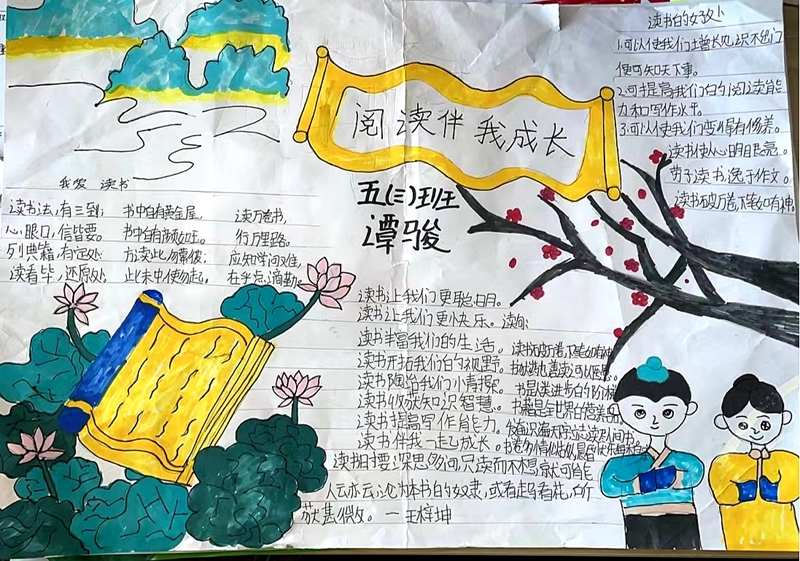 阅读伴我成长
五(三)班
谭骏
读书的好处
1.可以使我们增长见识不出门
便可知天下事。
2.可提高我们的阅读能
力和写作水平。
3.可以使我们变得有修养。
读书使人心明眼亮。
劳于读书,逸于作文。
读书破万卷下笔如有神。
我爱 读书
读书法,有三到; 书中自有黄金屋, 读万卷书,
心眼口,信皆要。 书中自有颜如玉。 行万里路。
列典籍,有定处 方读此,勿慕彼; 应知学问难,
读看毕,还原处, 此未中使勿起。 在乎点滴勤。
读书让我们更聪明。
读书让我们更快乐。读句:
读书丰富我们的生活。读书破万卷下笔如有神
读书开拓我们的视野。
读书陶冶我们小青操。书是人类进步的阶梯
读书收获知识智慧。
读书提高写作能力。
读书伴我一起成长。
读书时要深思多问,只读而不想,就可能
人云亦云,沦为书本的奴隶,或者走马看花,所
获甚微。一王梓坤